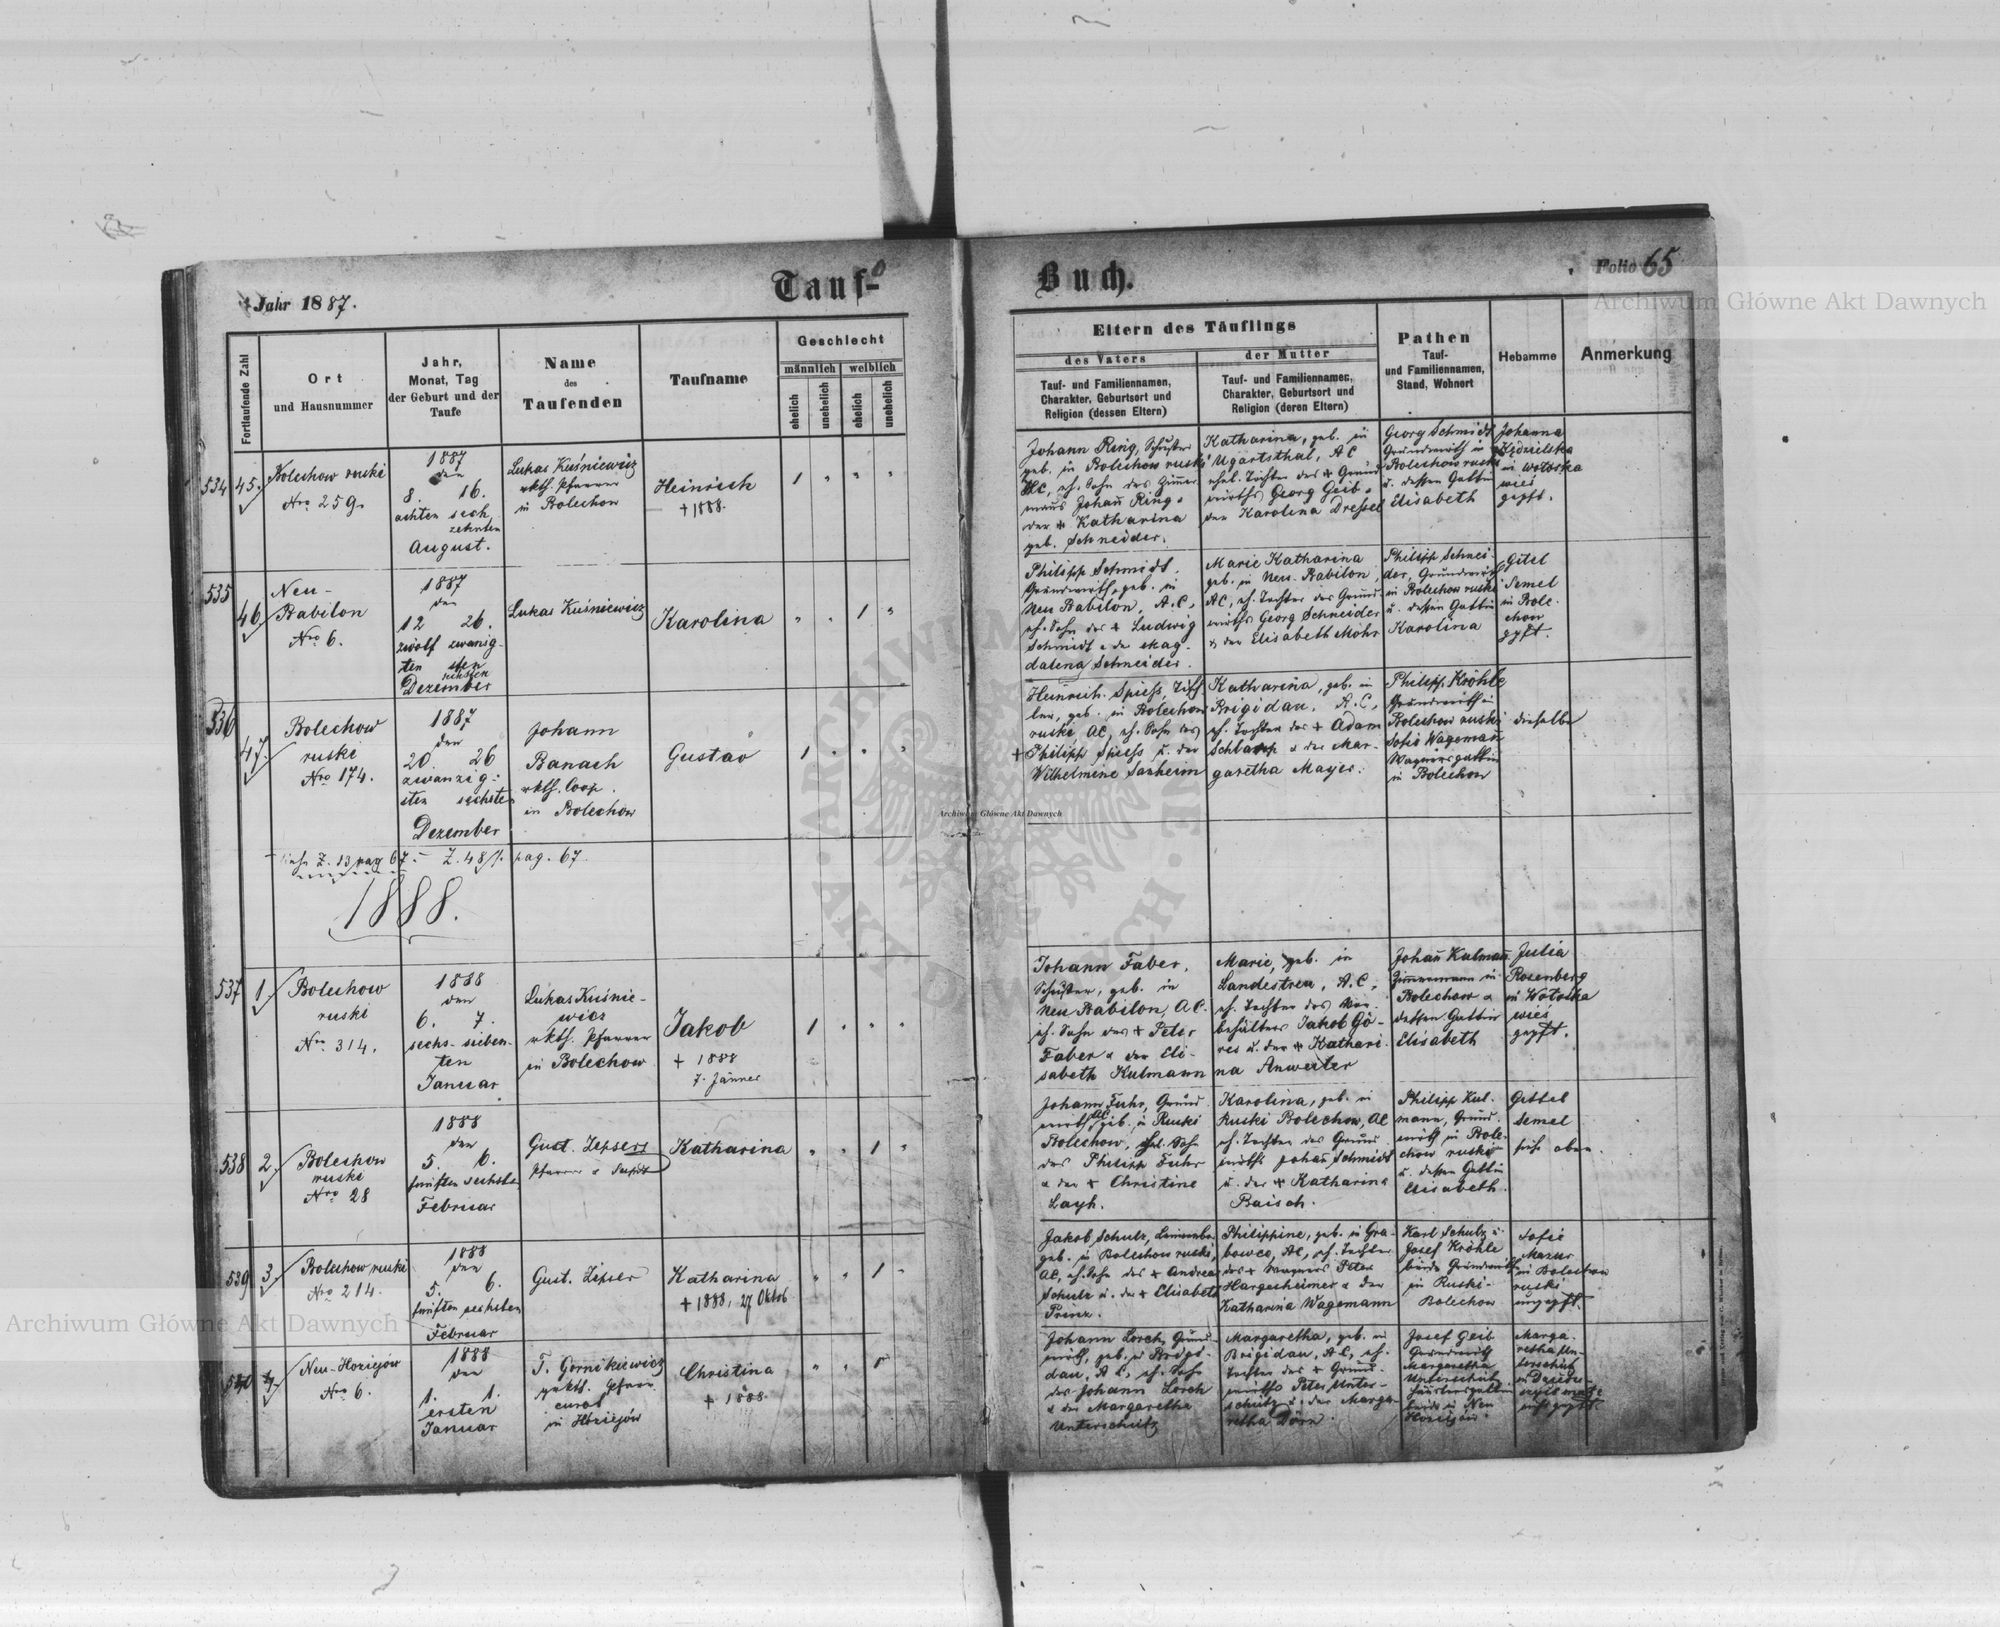 Jahr 1887.
Tauf-
Buch.
Folio 65
Fortlaufende Zahl
Ort
und Hausnummer
Jahr,
Monat, Tag
der Geburt und der
Taufe
Name
des
Taufenden
Taufname
Geschlecht
männlich
weiblich
ehelich
unehelich
ehelich
unehelich
Eltern des Täuflings
des Vaters
Tauf- und Familiennamen,
Charakter, Geburtsort und
Religion (dessen Eltern)
der Mutter
Tauf- und Familiennamen,
Charakter, Geburtsort und
Religion (deren Eltern)
Pathen
Tauf-
und Familiennamen,
Stand, Wohnort
Hebamme
Anmerkung
534
45.
Bolechow ruski
Nro 259.
1887
den
8. 16.
achten sech
zehnten
August.
Lukas Kuśniewicz
rkth. Pfarrer
in Bolechow
Heinrich
+ 1888.
1 " " "
Johann Ring, Schuster
geb. in Bolechow ruski
HC, eh. Sohn des Zimmer
manns Johann Ring u
der + Katharina
geb. Schneider.
Katharina, geb. in
Ugartsthal, AC
ehel. Tochter des + Grund
wirths Georg Geib u
der Karolina Dressel
Georg Schmidt
Grundwirth in
Bolechow ruski
u. dessen Gattin
Elisabeth
Johanna
in Wołoska
wieś
gepft.
535
46
Neu-
Babilon
Nro 6.
1887
den
12 26.
zwölf zwanzig-
ten sten
sechsten
Dezember
Lukas Kuśniewicz
Karolina
" " 1 "
Philipp Schmidt,
Grundwirth, geb. in
Neu Babilon, A.C,
eh. Sohn des + Ludwig
Schmidt u der Mag-
dalena Schneider.
Marie Katharina
geb. in Neu-Babilon,
AC, eh. Tochter des Grund
wirths Georg Schneider
u der Elisabeth Mohr
Philipp Schnei
der, Grundwirth
in Bolechow ruski
u. dessen Gattin
Karolina
Gitel
Semel
in Bole-
chow
gpft.
536
47.
Bolechow
ruski
Nro 174.
1887
den
20. 26
zwanzig-
sten sechsten
Dezember
Johann
Banach
rkth. Coop.
in Bolechow
Gustav
1 " " "
Heinrich Spiess, Tisch
ler, geb. in Bolechow
ruski, AC, eh. Sohn des
+ Philipp Spiess u. der
Wilhelmine Sanheim
Katharina, geb. in
Brigidau, A.C,
eh. Tochter des + Adam
Schlamp u der Mar-
garetha Mayer.
Philipp Kröhle
Grundwirth in
Bolechow ruski
Sofie Wagemañ
Wagnersgattin
in Bolechow
dieselbe
siehe Z. 13 pag 67. - Z. 48/. pag. 67.
1888.
537
1.
Bolechow
ruski
Nro 314.
1888
den
6. 7.
sechs- sieben-
ten
Januar
Lukas Kuśnie-
wicz
rkth. Pfarrer
in Bolechow
Jakob
+ 1888
7. Jänner
1 " " "
Johann Faber,
Schuster, geb. in
Neu Babilon, AC.
eh. Sohn des + Peter
Faber u der Eli-
sabeth Kulmann
Marie, geb. in
Landestreu, A.C,
eh. Tochter des
Jakob Gö-
res u. der + Kathari-
na Anweiler
Johañ Kulmañ
Zimmermann in
Bolechow u
dessen Gattin
Elisabeth
Julia
Rosenberg
in Wołoska
wieś
gepft.
538
2.
Bolechow
ruski
Nro 28
1888
den
5. 6.
fünften sechsten
Februar
Gust. Zipser
Pfarrer
Katharina
" " 1 "
Johann Fuhr, Grund
wirth AC geb. in Ruski
Bolechow, ehel. Sohn
des Philipp Fuhr
u der + Christine
Layh.
Karolina, geb. in
Ruski Bolechow, AC
eh. Tochter des Grund-
wirths Johañ Schmidt
u. der + Katharina
Baisch.
Philipp Kul-
mann, Grund-
wirth in Bole-
chow ruski
u. dessen Gattin
Elisabeth.
Gittel
Semel
siehe oben.
539
3.
Bolechow ruski
Nro 214.
1888
den
5. 6.
fünften sechsten
Februar
Gust. Zipser
Katharina
+ 1888, 27 Oktob
" " 1 "
Jakob Schulz,
geb. in Bolechow ruski,
AC, eh. Sohn des + Andreas
Schulz u. der + Elisabeth
Prinz.
Philippine, geb. in Gra-
bowce, AC, eh. Tochter
des + Wagners Peter
Hargesheimer u der
Katharina Wagemann
Karl Schulz u
Josef Kröhle
beide Grundwirth
in Ruski-
Bolechow
Sofie
Mazur
in Bolechow
ruski
ungepft.
540
4.
Neu-Hoziejów
Nro 6.
1888
den
1. 1.
ersten
Januar
T. Gornikiewicz
grkth. Pfarr-
curat
in Hoziejów
Christina
+ 1888.
Johann Lorch, Grund-
wirth, geb. in Brigi-
dau, AC, eh. Sohn
des Johann Lorch
u der Margaretha
Unterschütz
Margaretha, geb. in
Brigidau, AC, eh.
Tochter des + Grund-
wirths Peter Unter-
schütz u. der Marga-
retha Dörr.
Josef Geib
Grundwirth
Margaretha
Unterschütz
beide in Neu
Hoziejów.
Marga-
retha Un-
terschütz
Archiwum Główne Akt Dawnych
Archiwum Główne Akt Dawnych
Archiwum Główne Akt Dawnych
ARCHIWUM GŁÓWNE AKT DAWNYCH